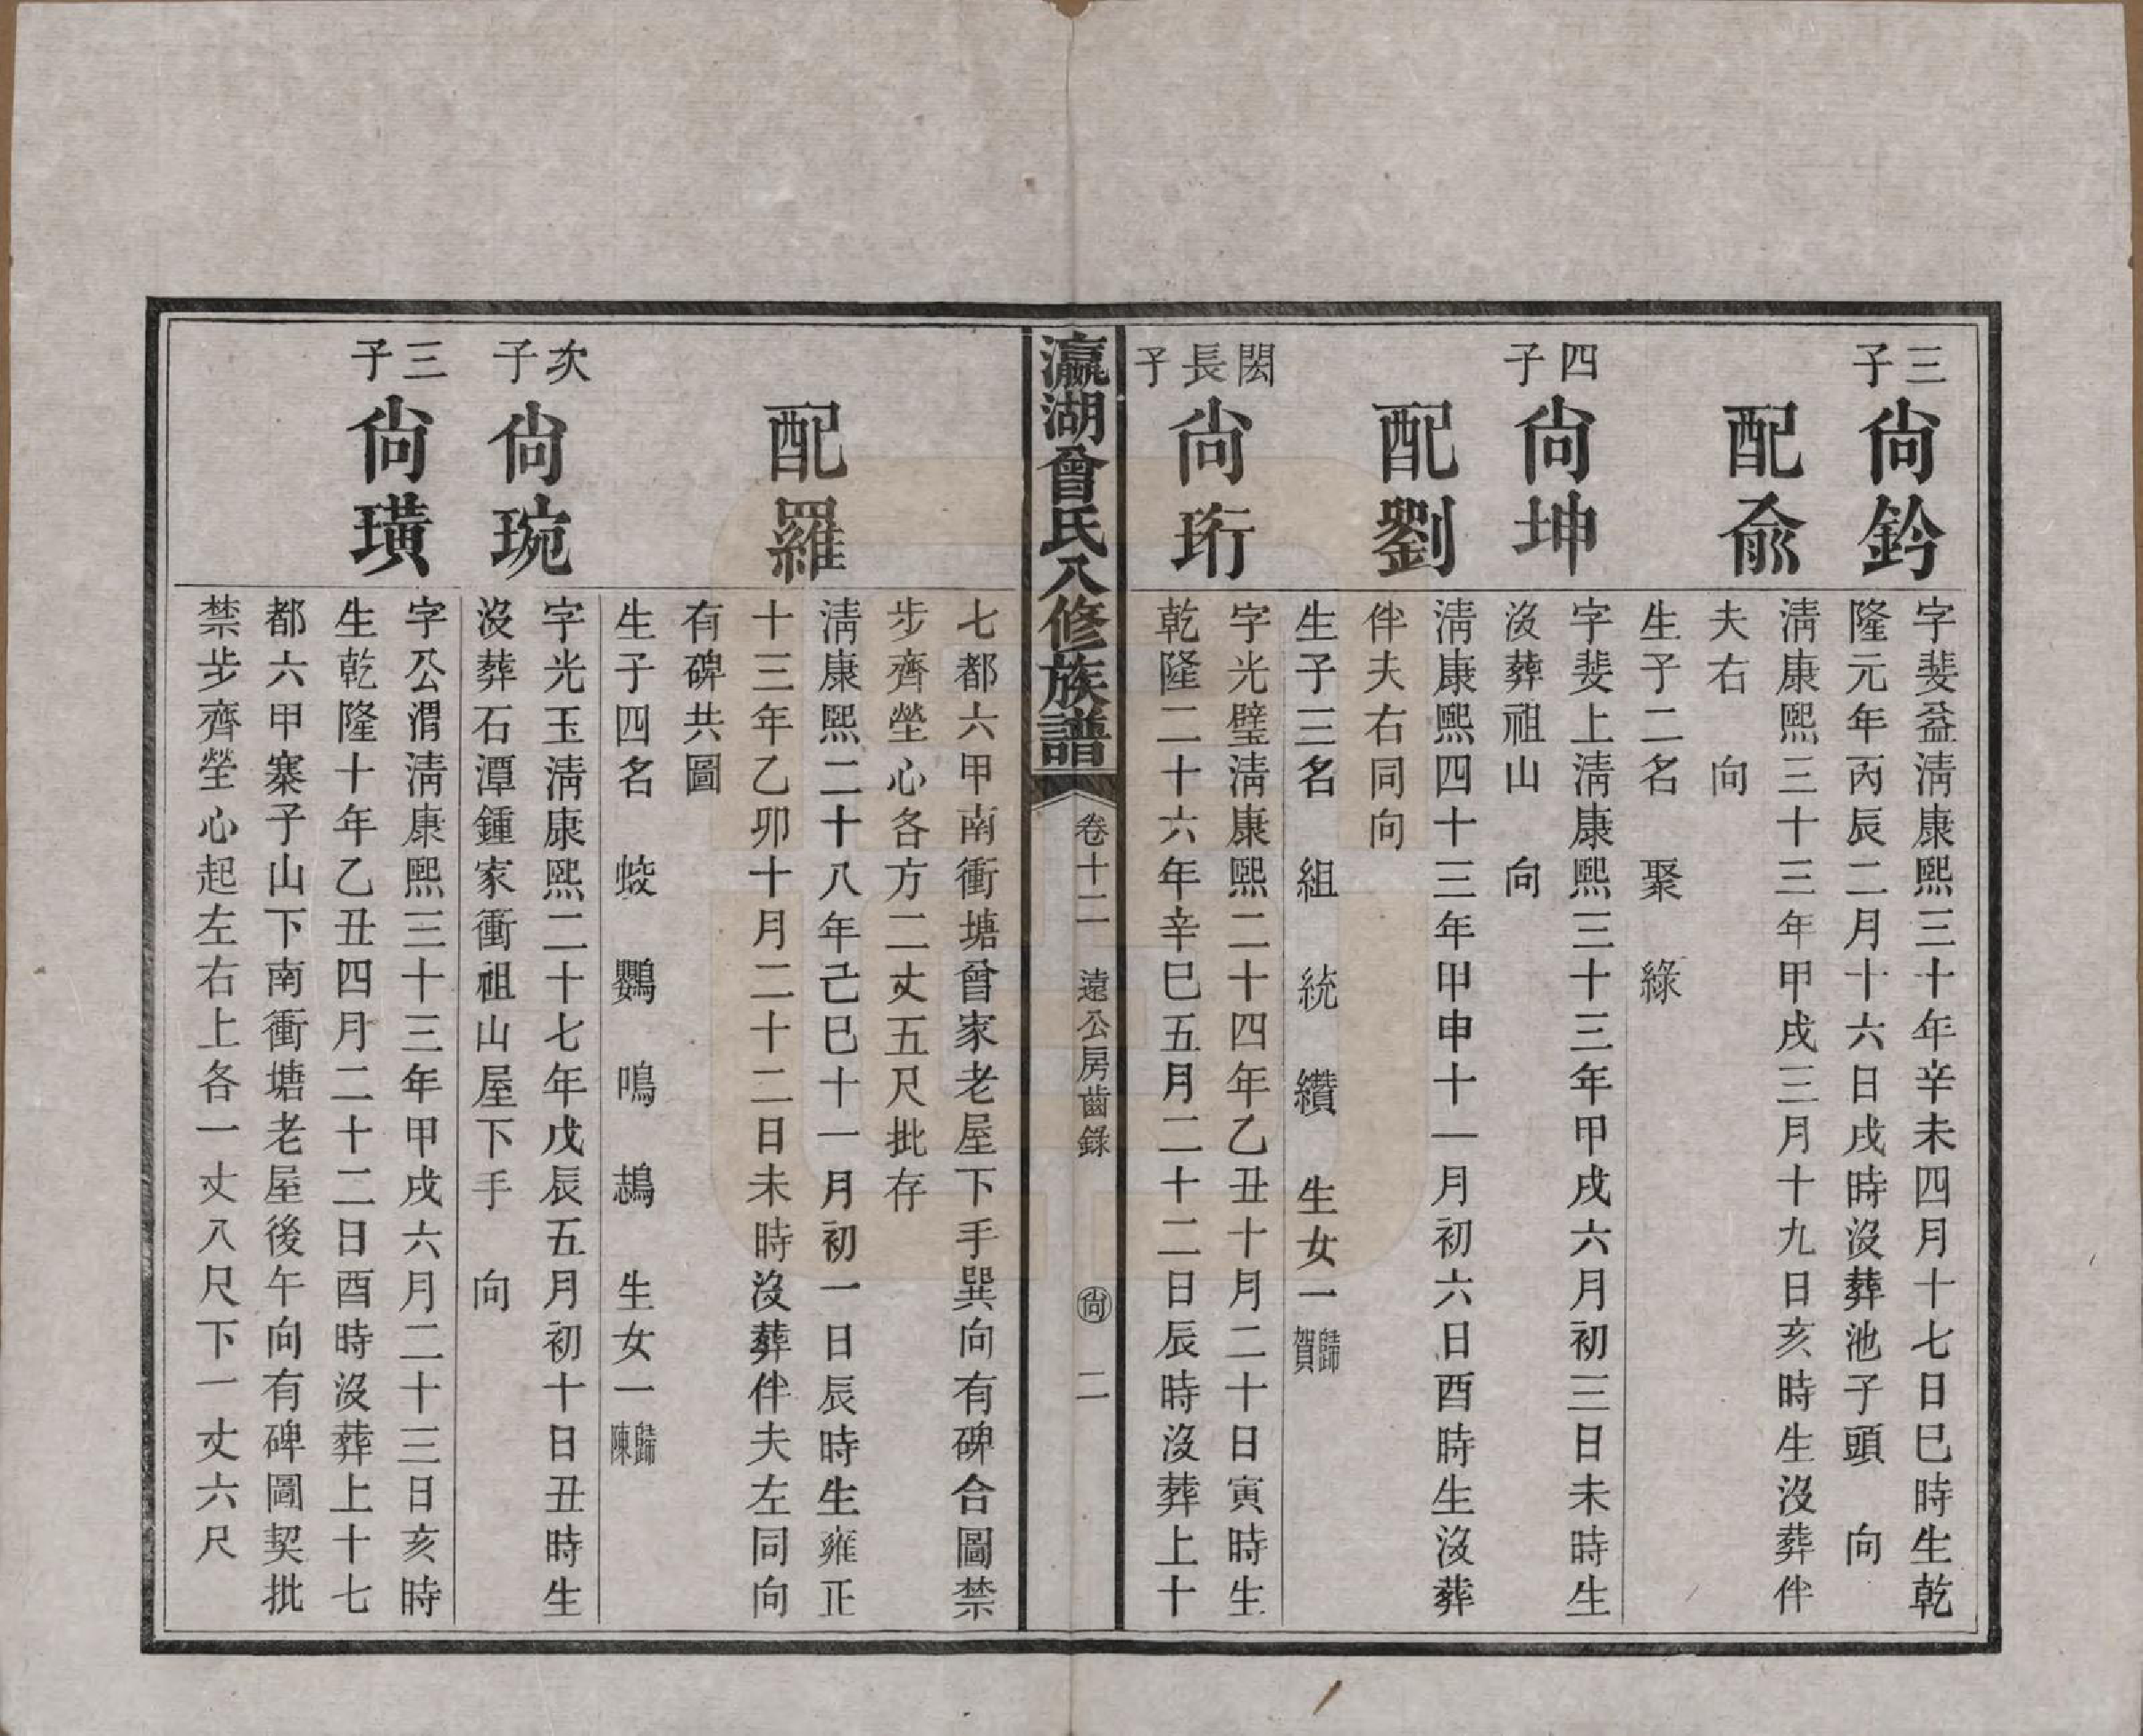 三子
尙鈐
字斐益淸康熙三十年辛未四月十七日巳時生乾
隆元年丙辰二月十六日戌時沒葬池子頭　向
配兪
淸康熙三十三年甲戌三月十九日亥時生沒葬伴
夫右　向
生子二名　聚　綠
四子
尙坤
字斐上淸康熙三十三年甲戌六月初三日未時生
沒葬祖山　向
配劉
淸康熙四十三年甲申十一月初六日酉時生沒葬
伴夫右同向
生子三名　組　統　纘　生女一歸賀
閎長子
尙珩
字光璧淸康熙二十四年乙丑十月二十日寅時生
乾隆二十六年辛巳五月二十二日辰時沒葬上十
瀛湖曾氏八修族譜　卷十二　遠公房齒錄　尙　二
七都六甲南衝塘曾家老屋下手巽向有碑合圖禁
步齊塋心各方二丈五尺批存
配羅
淸康熙二十八年己巳十一月初一日辰時生雍正
十三年乙卯十月二十二日未時沒葬伴夫左同向
有碑共圖
生子四名　蛟　鸚　鳴　鵡　生女一歸陳
次子
尙琬
字光玉淸康熙二十七年戊辰五月初十日丑時生
沒葬石潭鍾家衝祖山屋下手　向
三子
尙璜
字公渭淸康熙三十三年甲戌六月二十三日亥時
生乾隆十年乙丑四月二十二日酉時沒葬上十七
都六甲寨子山下南衝塘老屋後午向有碑圖契批
禁步齊塋心起左右上各一丈八尺下一丈六尺